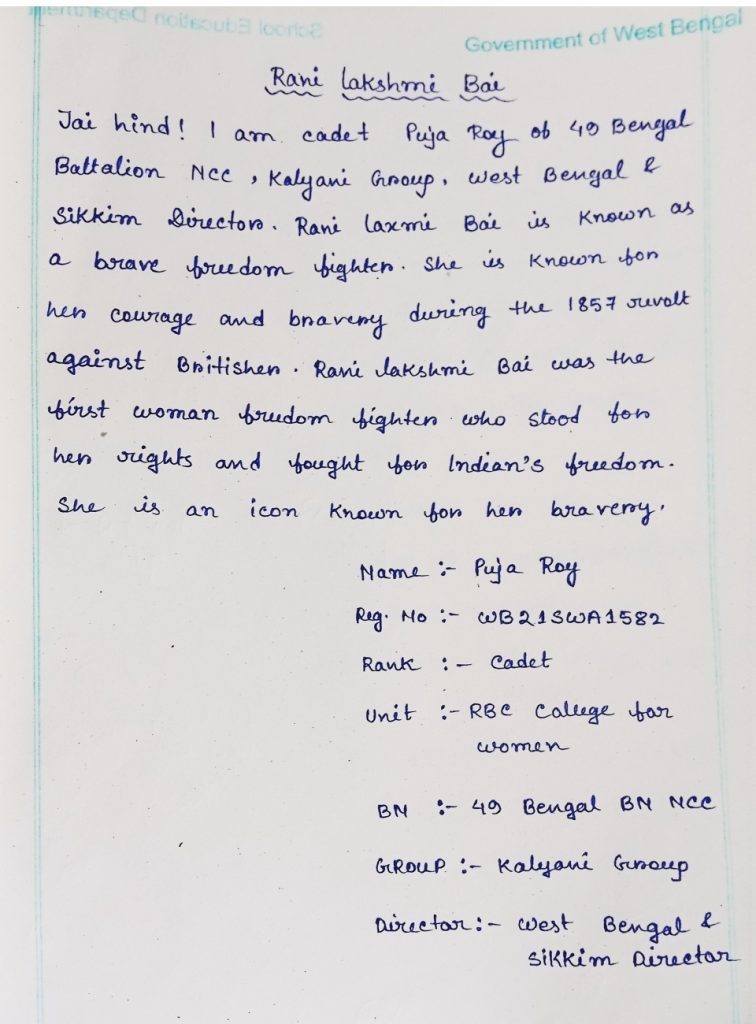 School Education Department
Government of West Bengal
Rani Lakshmi Bai
Jai hind! I am cadet Puja Roy of 49 Bengal
Battalion NCC, Kalyani Group, West Bengal &
Sikkim Director. Rani laxmi Bai is known as
a brave freedom fighter. She is known for
her courage and bravery during the 1857 revolt
against Britisher. Rani lakshmi Bai was the
first woman freedom fighter who stood for
her rights and fought for Indian's freedom.
She is an icon known for her bravery.
Name :- Puja Roy
Reg. No :- WB21SWA1582
Rank :- Cadet
Unit :- RBC College for
women
BN :- 49 Bengal BN NCC
GROUP :- Kalyani Group
Director :- West Bengal &
Sikkim Director